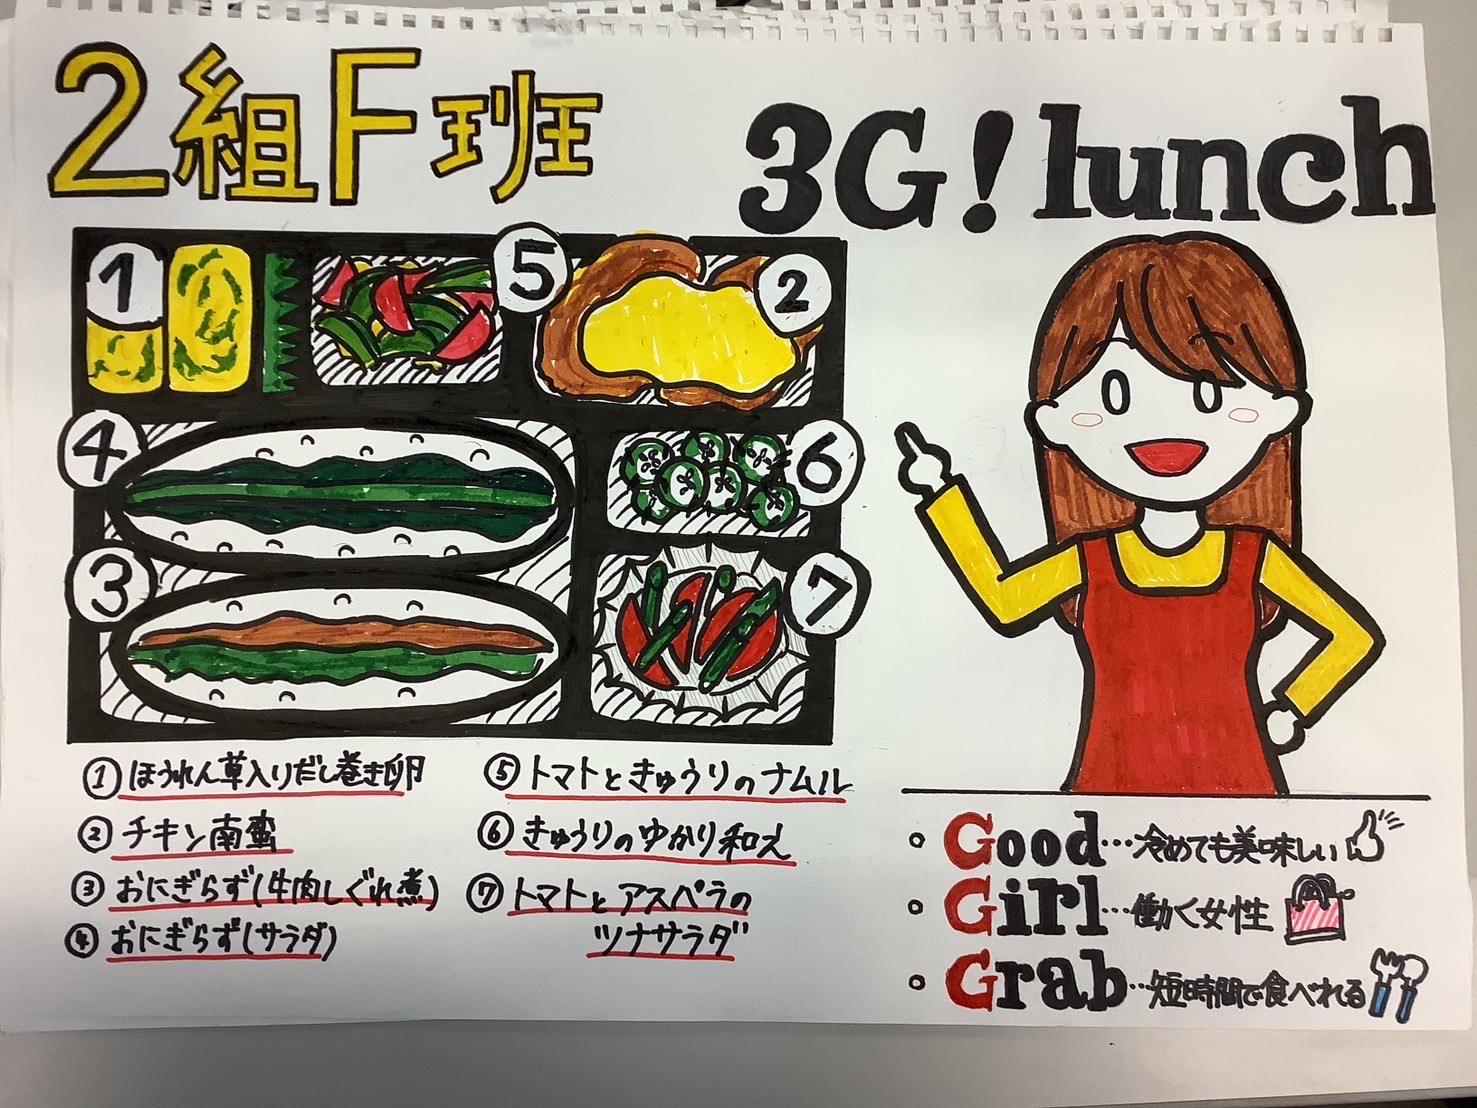 2組F班
3G! lunch
1
5
2
4
6
3
7
① ほうれん草入りだし巻き卵
② チキン南蛮
③ おにぎらず(牛肉しぐれ煮)
④ おにぎらず(サラダ)
⑤ トマトときゅうりのナムル
⑥ きゅうりのゆかり和え
⑦ トマトとアスパラの
ツナサラダ
・Good…冷めても美味しい
・Girl…働く女性
・Grab…短時間で食べれる